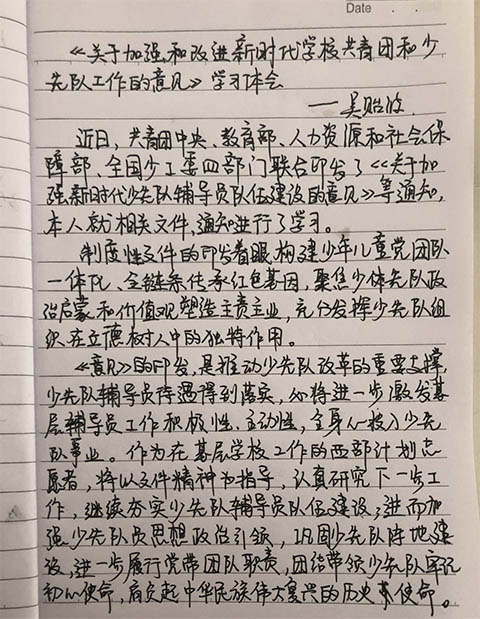 Date . .
《关于加强和改进新时代学校共青团和少
先队工作的意见》学习体会
——吴贻
近日，共青团中央、教育部、人力资源和社会保
障部、全国少工委四部门联合印发了《关于加
强新时代少先队辅导员队伍建设的意见》等通知，
本人就相关文件，通知进行了学习。
制度性文件的印发着眼构建少年儿童党团队
一体化、全链条传承红色基因，聚焦少体先队政
治启蒙和价值观塑造主责主业，充分发挥少先队组
织在立德树人中的独特作用。
《意见》的印发，是推动少先队改革的重要支撑，
少先队辅导员待遇得到落实，必将进一步激发基
层辅导员工作积极性、主动性，全身心投入少先
队事业。作为在基层学校工作的西部计划志
愿者，将以文件精神为指导，认真研究下一步工
作，继续夯实少先队辅导员队伍建设；进而加
强少先队员思想政治引领，巩固少先队阵地建
设，进一步履行党带团队职责，团结带领少先队牢记
初心使命，肩负起中华民族伟大复兴的历史革使命。